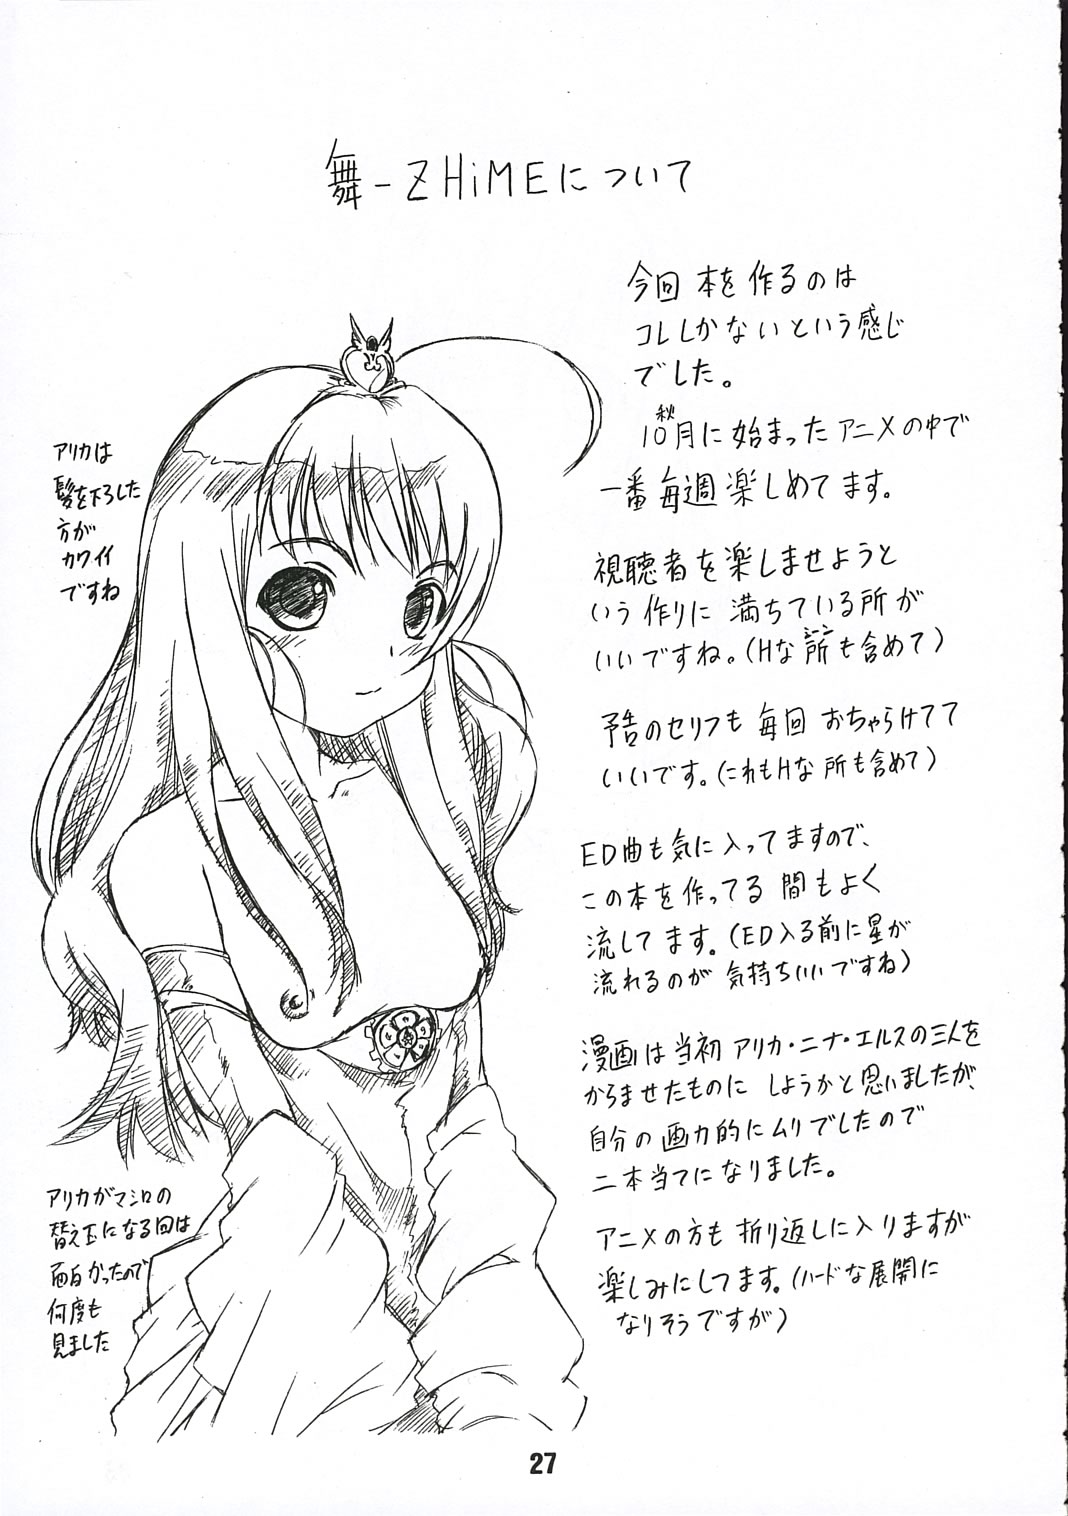 舞-ZHiMEについて
今回 本を作るのは
コレしかないという感じ
でした。
秋
10月に始まったアニメの中で
一番毎週楽しめてます。
視聴者を楽しませようと
いう作りに満ちている所が
シーン
いいですね。(Hな所も含めて)
予告のセリフも毎回おちゃらけてて
いいです。(これもHな所も含めて)
ED曲も気に入ってますので、
この本を作ってる間もよく
流してます。(ED入る前に星が
流れるのが気持ちいいですね)
漫画は当初アリカ・ニナ・エルスの三人を
からませたものにしようかと思いましたが、
自分の画力的にムリでしたので
二本当てになりました。
アニメの方も折り返しに入りますが
楽しみにしてます。(ハードな展開に
なりそうですが)
アリカは
髪を下ろした
方が
カワイイ
ですね
アリカがマシロの
替え玉になる回は
面白かったので
何度も
見ました
27